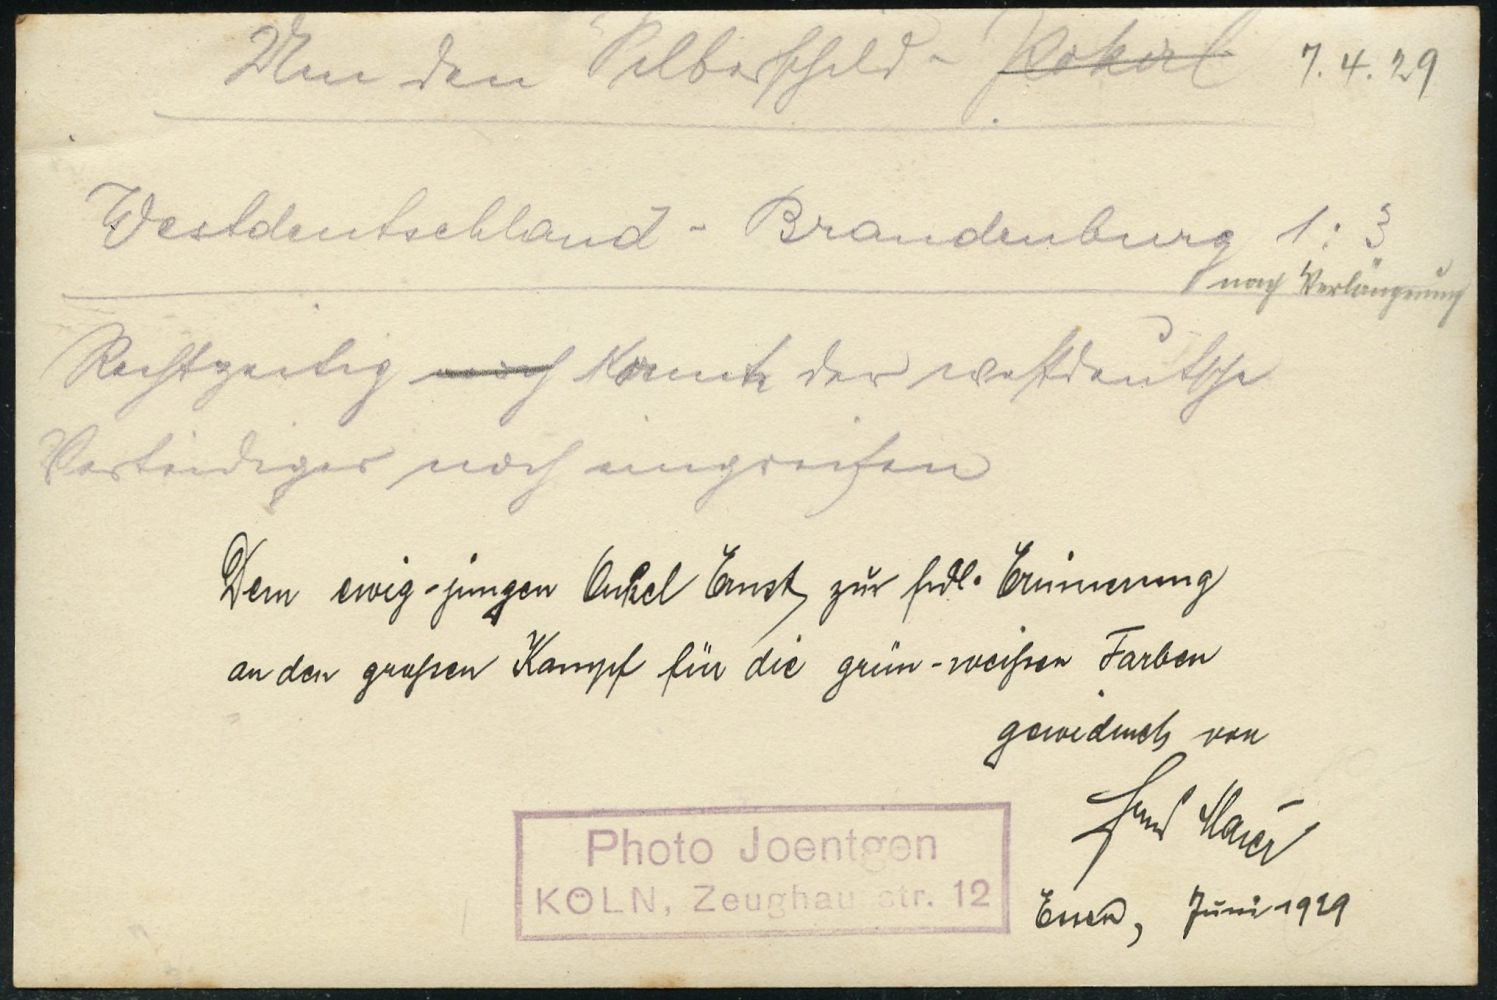 Um den Silberschild- Pokal 7.4.29
Westdeutschland - Brandenburg 1:3
nach Verlängerung
Rechtzeitig noch konnte der westdeutsche
Verteidiger noch eingreifen
Dem ewig-jungen Onkel Ernst, zur frdl. Erinnerung
an den großen Kampf für die grün-weißen Farben
gewidmet von
Maier
Essen, Juni 1929
Photo Joentgen
KÖLN, Zeughau str. 12